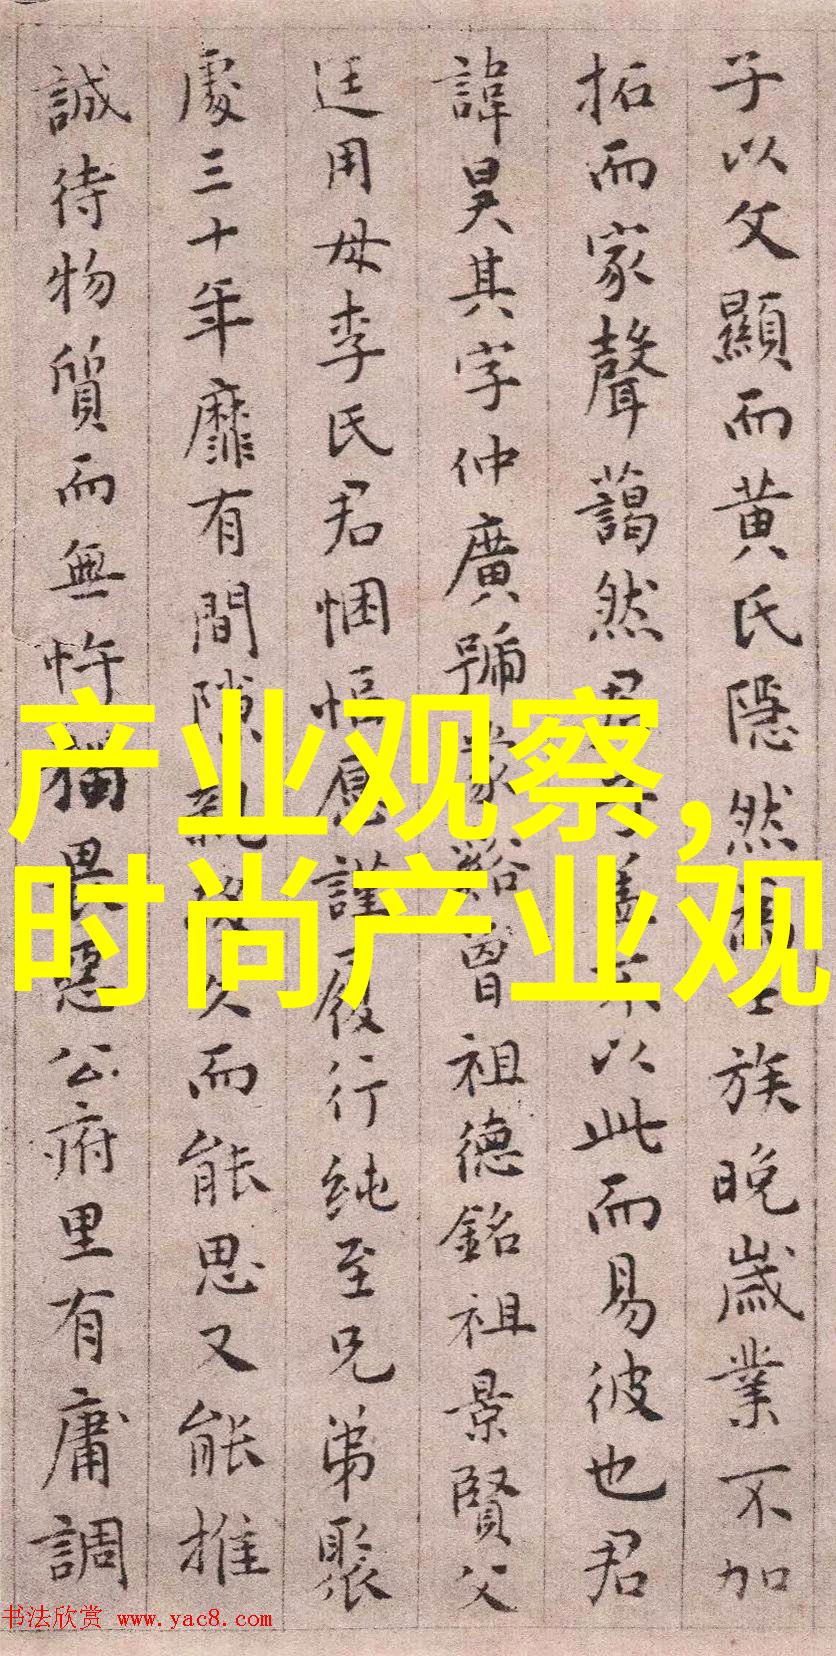 子以父顯而黄氏隱然
族晚歲業不加
拓而家聲藹然君
不以此而易彼也君
諱昊其字仲廣號蒙谿曾祖德銘祖景賢父
廷用母李氏君悃愊應謹履行純至兄弟聚
處三十年靡有間隙
久而能思又能推
誠待物質而無忤猶畏惡公府里有庸調
产业观察,
时尚产业观
书法欣赏 www.yac8.com